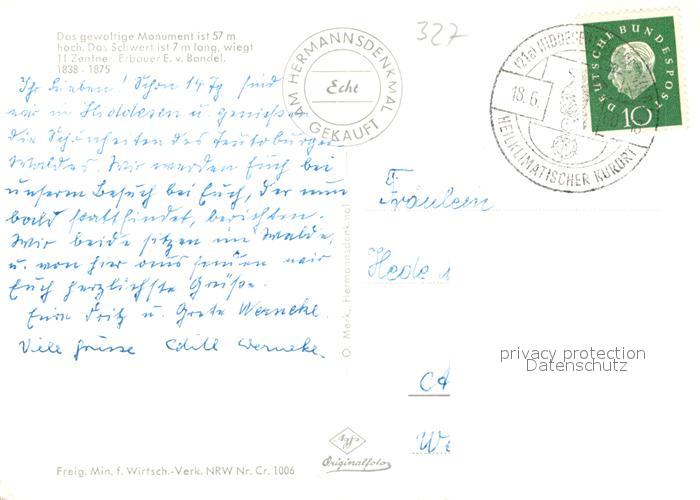 Das gewaltige Monument ist 57 m
hoch. Das Schwert ist 7 m lang, wiegt
11 Zentner. Erbauer E. v. Bandel.
1838 - 1875
AM HERMANNSDENKMAL
Echt
GEKAUFT
327
(21a) HIDDESEN
18.6.
HEILKLIMATISCHER KURORT
DEUTSCHE BUNDESPOST
10
Ihr Lieben! Schon 14 Tg sind
wir in Hiddesen u. genießen
die Schönheiten des Teutoburger
Waldes. Wir werden Euch bei
unserem Besuch bei Euch, der nun
bald stattfindet, berichten.
Wir beide sitzen im Walde,
u. von hier aus senden wir
Euch herzlichste Grüße.
Eure Fritz u. Grete Werneke.
Viele Grüsse Edith Werneke.
O. Merk, Hermannsdenkmal
Fräulein
Hede
privacy protection
Datenschutz
Agfa
Originalfoto
Freig. Min. f. Wirtsch.-Verk. NRW Nr. Cr. 1006